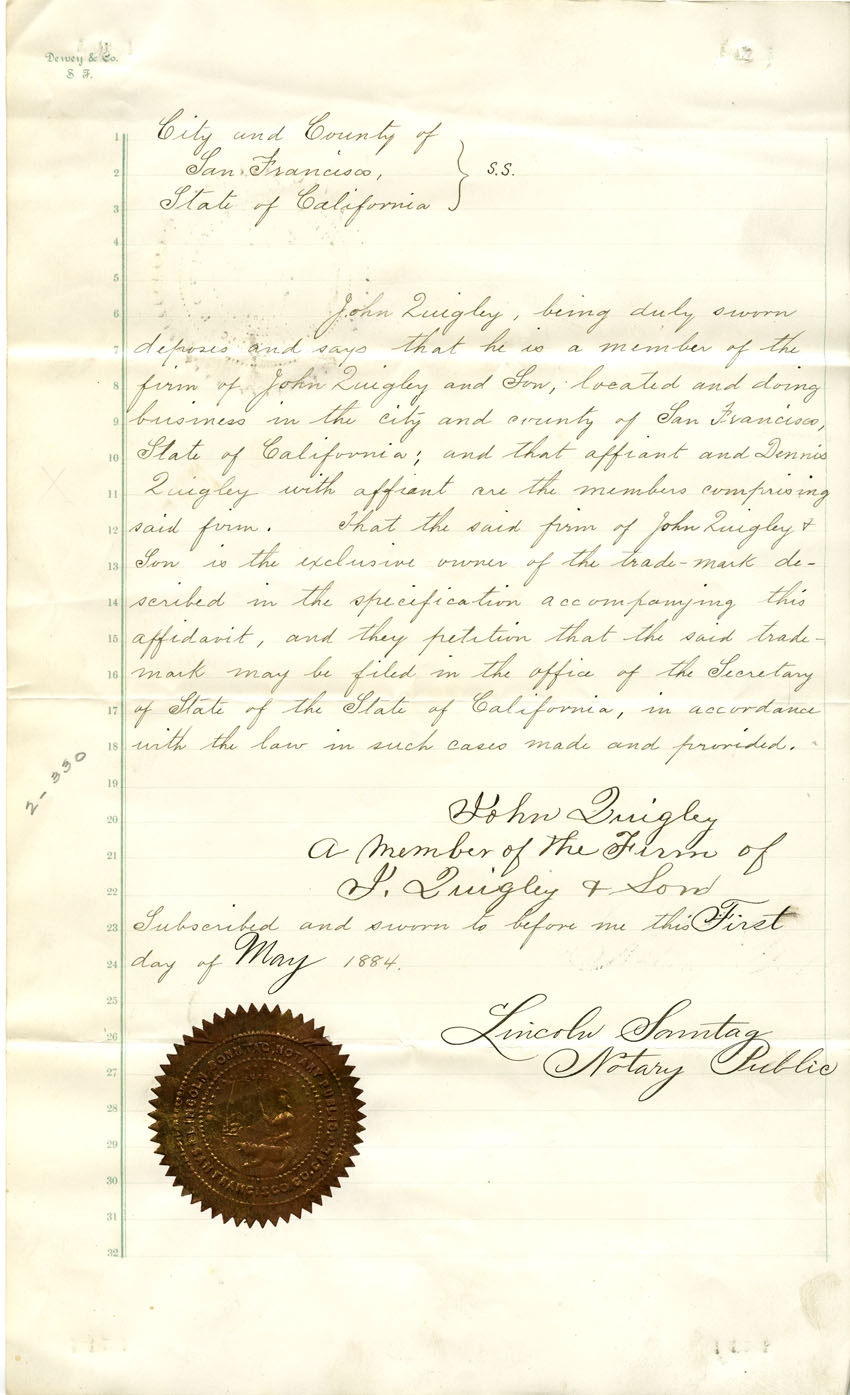 Dewey & Co.
S. F.
1 City and County of
2 San Francisco, } S.S.
3 State of California
4
5
6 John Quigley, being duly sworn
7 deposes and says that he is a member of the
8 firm of John Quigley and Son, located and doing
9 business in the city and county of San Francisco,
10 State of California; and that affiant and Dennis
11 Quigley with affiant are the members comprising
12 said firm. That the said firm of John Quigley &
13 Son is the exclusive owner of the trade-mark de-
14 scribed in the specification accompanying this
15 affidavit, and they petition that the said trade-
16 mark may be filed in the office of the Secretary
17 of State of the State of California, in accordance
18 with the law in such cases made and provided.
2-330
19
20 John Quigley
21 A Member of the Firm of
22 J. Quigley & Son
23 Subscribed and sworn to before me this First
24 day of May 1884.
25
26 Lincoln Sonntag
27 Notary Public
28
29
30
31
32
LINCOLN SONNTAG, NOTARY PUBLIC
SAN FRANCISCO CO. CAL.